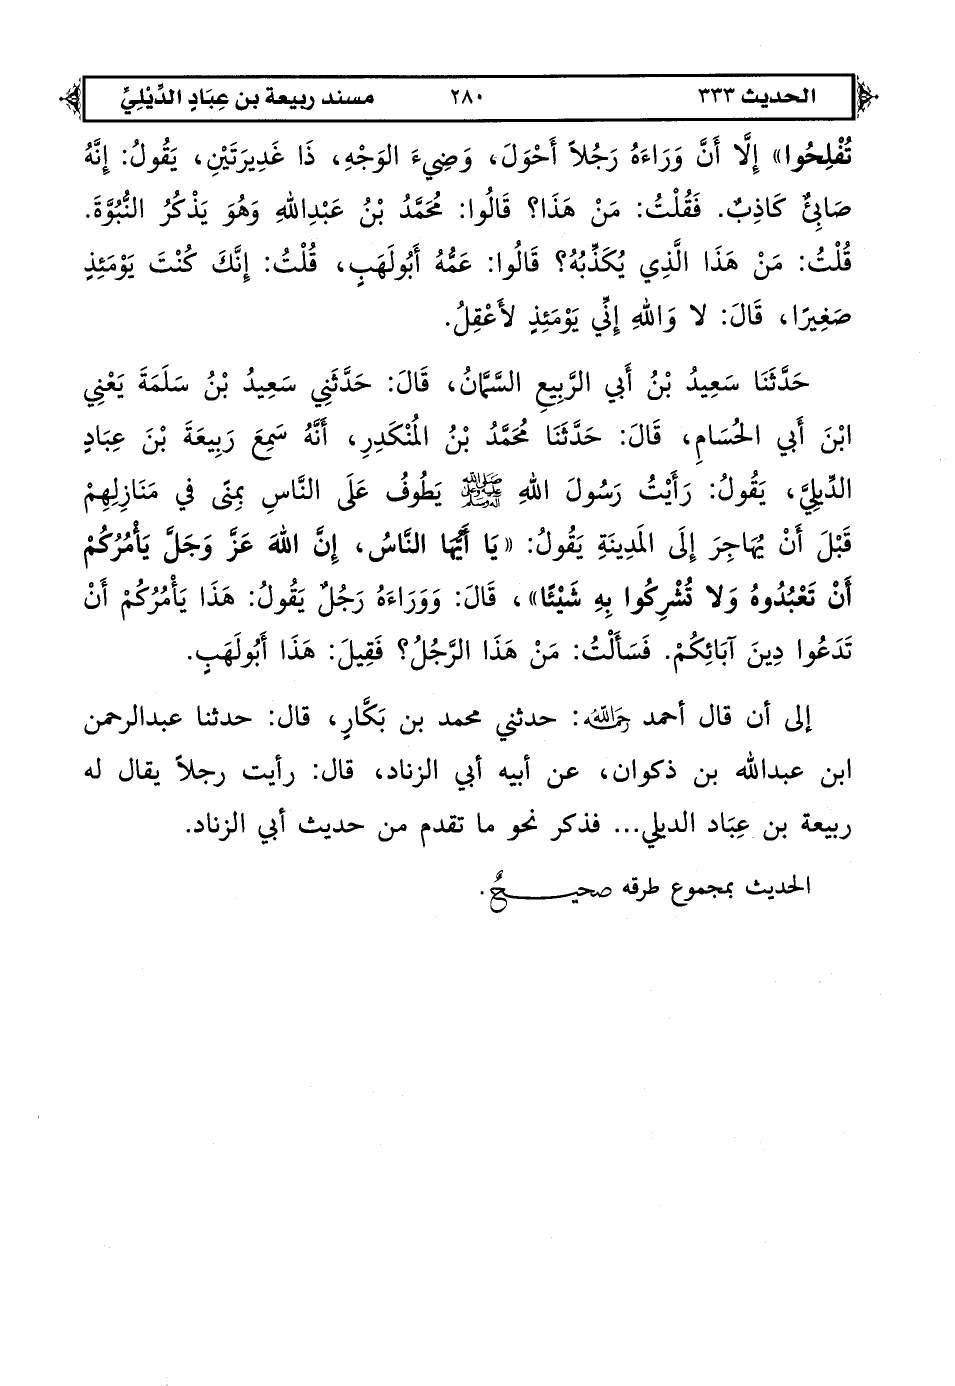 الحديث ٣٣٣ ٢٨٠ مسند ربيعة بن عِبَادٍ الدِّيْلِيِّ
تُفْلِحُوا» إِلَّا أَنَّ وَرَاءَهُ رَجُلاً أَحْوَلَ، وَضِيءَ الوَجْهِ، ذَا غَدِيرَتَيْنِ، يَقُولُ: إِنَّهُ
صَابِئٌ كَاذِبٌ. فَقُلْتُ: مَنْ هَذَا؟ قَالُوا: مُحَمَّدُ بْنُ عَبْدِاللهِ وَهُوَ يَذْكُرُ النُّبُوَّةَ.
قُلْتُ: مَنْ هَذَا الَّذِي يُكَذِّبُهُ؟ قَالُوا: عَمُّهُ أَبُولَهَبٍ، قُلْتُ: إِنَّكَ كُنْتَ يَوْمَئِذٍ
صَغِيرًا، قَالَ: لا وَاللهِ إِنِّي يَوْمَئِذٍ لأَعْقِلُ.
حَدَّثَنَا سَعِيدُ بْنُ أَبِي الرَّبِيعِ السَّمَّانُ، قَالَ: حَدَّثَنِي سَعِيدُ بْنُ سَلَمَةَ يَعْنِي
ابْنَ أَبِي الحُسَامِ، قَالَ: حَدَّثَنَا مُحَمَّدُ بْنُ المُنْكَدِرِ، أَنَّهُ سَمِعَ رَبِيعَةَ بْنَ عِبَادٍ
الدِّيلِيَّ، يَقُولُ: رَأَيْتُ رَسُولَ اللهِ ﷺ يَطُوفُ عَلَى النَّاسِ بِمِنًى فِي مَنَازِلِهِمْ
قَبْلَ أَنْ يُهَاجِرَ إِلَى المَدِينَةِ يَقُولُ: «يَا أَيُّهَا النَّاسُ، إِنَّ اللهَ عَزَّ وَجَلَّ يَأْمُرُكُمْ
أَنْ تَعْبُدُوهُ وَلا تُشْرِكُوا بِهِ شَيْئًا»، قَالَ: وَوَرَاءَهُ رَجُلٌ يَقُولُ: هَذَا يَأْمُرُكُمْ أَنْ
تَدَعُوا دِينَ آبَائِكُمْ. فَسَأَلْتُ: مَنْ هَذَا الرَّجُلُ؟ فَقِيلَ: هَذَا أَبُولَهَبٍ.
إلى أن قال أحمد رحمه الله: حدثني محمد بن بَكَّارٍ، قال: حدثنا عبدالرحمن
ابن عبدالله بن ذكوان، عن أبيه أبي الزناد، قال: رأيت رجلاً يقال له
ربيعة بن عِبَاد الديلي... فذكر نحو ما تقدم من حديث أبي الزناد.
الحديث بمجموع طرقه صحيـــــحٌ.